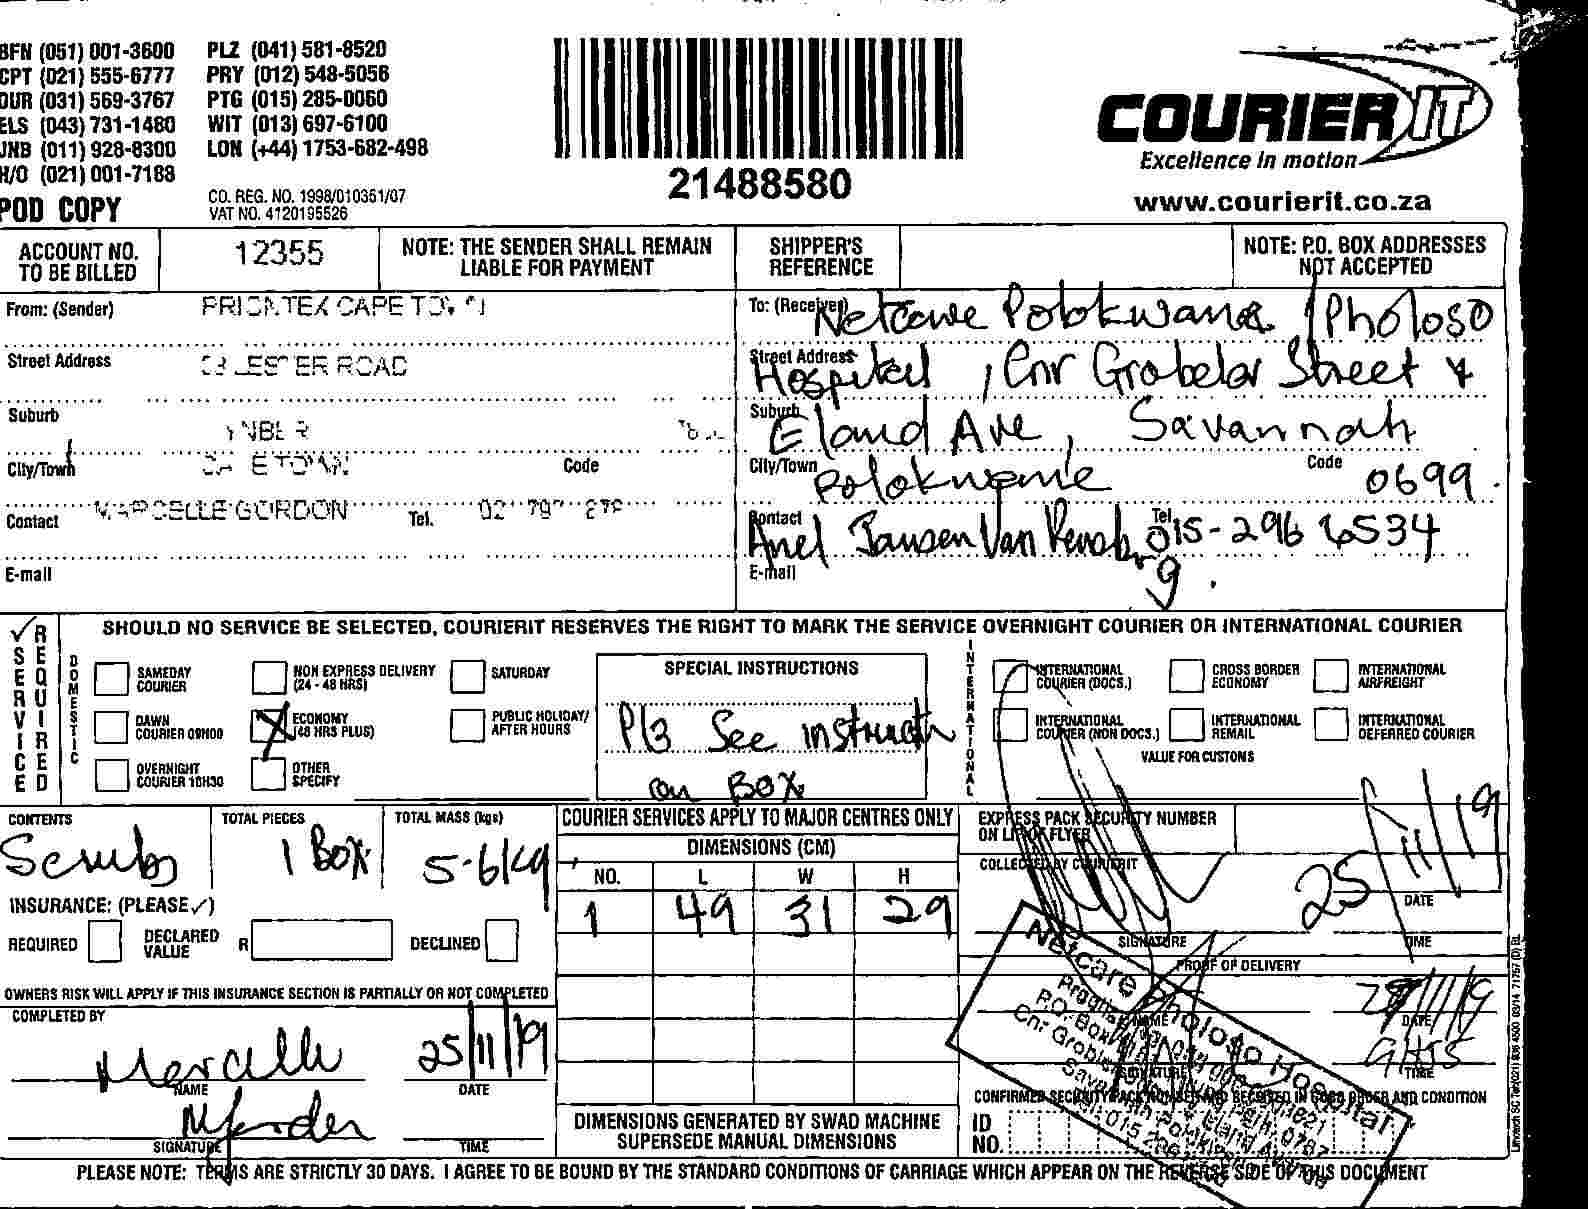 BFN (051) 001-3600 PLZ (041) 581-8520
CPT (021) 555-6777 PRY (012) 548-5056
DUR (031) 569-3767 PTG (015) 285-0060
ELS (043) 731-1480 WIT (013) 697-6100
JNB (011) 928-8300 LON (+44) 1753-682-498
H/O (021) 001-7188
POD COPY
CO. REG. NO. 1998/010351/07
VAT NO. 4120195526
21488580
COURIER IT
Excellence in motion
www.courierit.co.za
ACCOUNT NO. TO BE BILLED
12355
NOTE: THE SENDER SHALL REMAIN LIABLE FOR PAYMENT
SHIPPER'S REFERENCE
NOTE: P.O. BOX ADDRESSES NOT ACCEPTED
From: (Sender) CAPE
Street Address ROAD
Suburb
City/Town Code
Contact MARCELLE GORDON Tel.
E-mail
To: (Receiver) Netcare Polokwane / Pholoso
Street Address Hospital, Cnr Grobelar Street &
Suburb Eland Ave, Savannah
City/Town Polokwane Code 0699
Contact Anel Jansen Van Rensburg Tel. 015-296 6534
E-mail
✓ SERVICE REQUIRED
SHOULD NO SERVICE BE SELECTED, COURIERIT RESERVES THE RIGHT TO MARK THE SERVICE OVERNIGHT COURIER OR INTERNATIONAL COURIER
DOMESTIC
SAMEDAY COURIER
NON EXPRESS DELIVERY (24 - 48 HRS)
SATURDAY
DAWN COURIER 09H00
X ECONOMY (48 HRS PLUS)
PUBLIC HOLIDAY/ AFTER HOURS
OVERNIGHT COURIER 10H30
OTHER SPECIFY
SPECIAL INSTRUCTIONS
See instruct
on Box
INTERNATIONAL
INTERNATIONAL COURIER (DOCS.)
CROSS BORDER ECONOMY
INTERNATIONAL AIRFREIGHT
INTERNATIONAL COURIER (NON DOCS.)
INTERNATIONAL REMAIL
INTERNATIONAL DEFERRED COURIER
VALUE FOR CUSTOMS
CONTENTS
Scrubs
TOTAL PIECES
1 Box
TOTAL MASS (kgs)
5.6kg
COURIER SERVICES APPLY TO MAJOR CENTRES ONLY
DIMENSIONS (CM)
NO. L W H
1 49 31 29
EXPRESS PACK SECURITY NUMBER ON LIP OF FLYER
COLLECTED BY COURIERIT
25/11/19
DATE
SIGNATURE TIME
INSURANCE: (PLEASE ✓)
REQUIRED DECLARED VALUE R DECLINED
OWNERS RISK WILL APPLY IF THIS INSURANCE SECTION IS PARTIALLY OR NOT COMPLETED
COMPLETED BY
Marcelle 25/11/19
NAME DATE
SIGNATURE TIME
DIMENSIONS GENERATED BY SWAD MACHINE SUPERSEDE MANUAL DIMENSIONS
PROOF OF DELIVERY
NAME DATE
SIGNATURE TIME
Netcare Pholoso Hospital
CONFIRMED SECURITY PACK NUMBER AND RECEIVED IN GOOD ORDER AND CONDITION
ID NO.
PLEASE NOTE: TERMS ARE STRICTLY 30 DAYS. I AGREE TO BE BOUND BY THE STANDARD CONDITIONS OF CARRIAGE WHICH APPEAR ON THE REVERSE SIDE OF THIS DOCUMENT